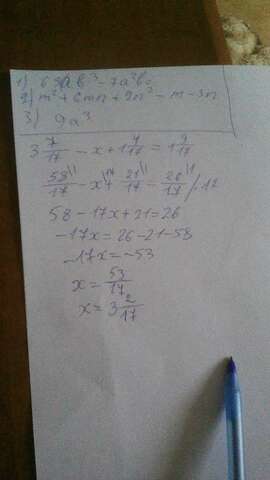 1) 63ab³ - 7a³b
2) m² + 6mn + 9n² - m - 3n
3) 9a³
3 7/17 - x + 1 4/17 = 1 9/17
58/17 - x + 21/17 = 26/17 / · 17
58 - 17x + 21 = 26
-17x = 26 - 21 - 58
-17x = -53
x = 53/17
x = 3 2/17